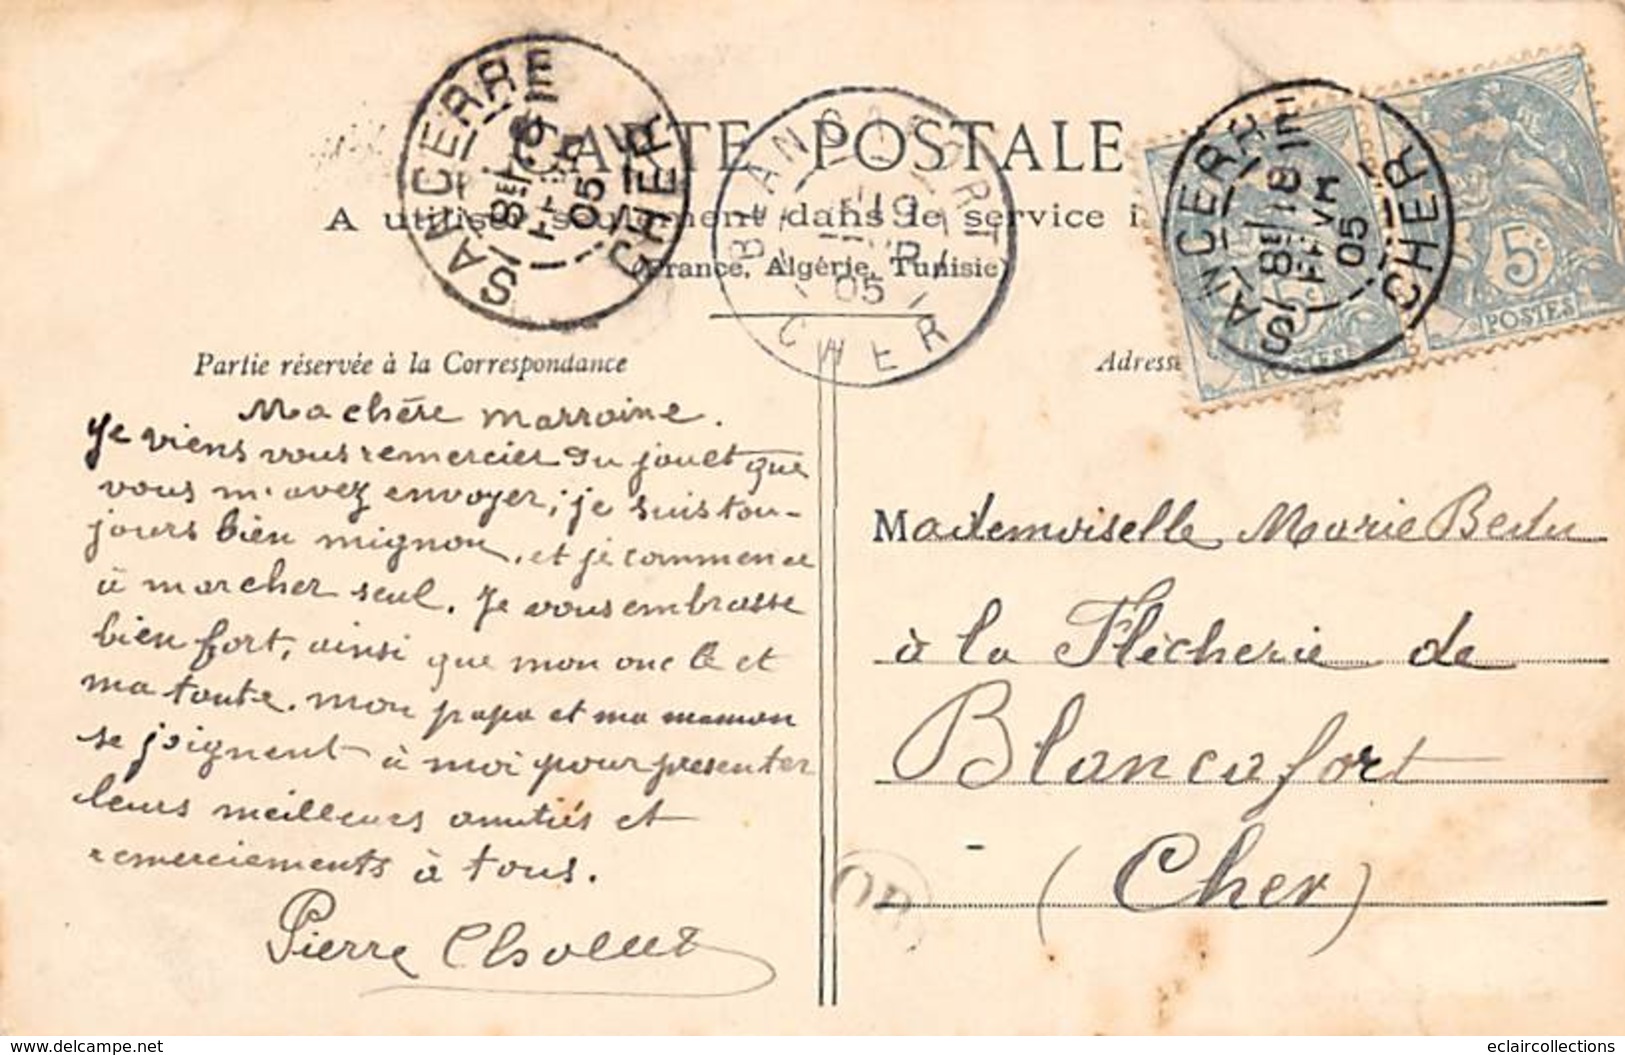 CARTE POSTALE
A utiliser seulement dans le service i
(France, Algérie, Tunisie)
SANCERRE
CHER
05
BLANCAFORT
19
05
CHER
SANCERRE
18
05
CHER
5c
POSTES
5c
POSTES
Partie réservée à la Correspondance
Adresse
Ma chère marraine.
Je viens vous remercier du jouet que
vous m'avez envoyer; je suis tou-
jours bien mignon, et je commence
à marcher seul. Je vous embrasse
bien fort, ainsi que mon oncle et
ma tante. mon papa et ma maman
se joignent à moi pour presenter
leurs meilleurs amitiés et
remerciements à tous.
Pierre
Mademoiselle Marie Bedu
à la Flécherie de
Blancafort
(Cher)
OR
www.delcampe.net
eclaircollections